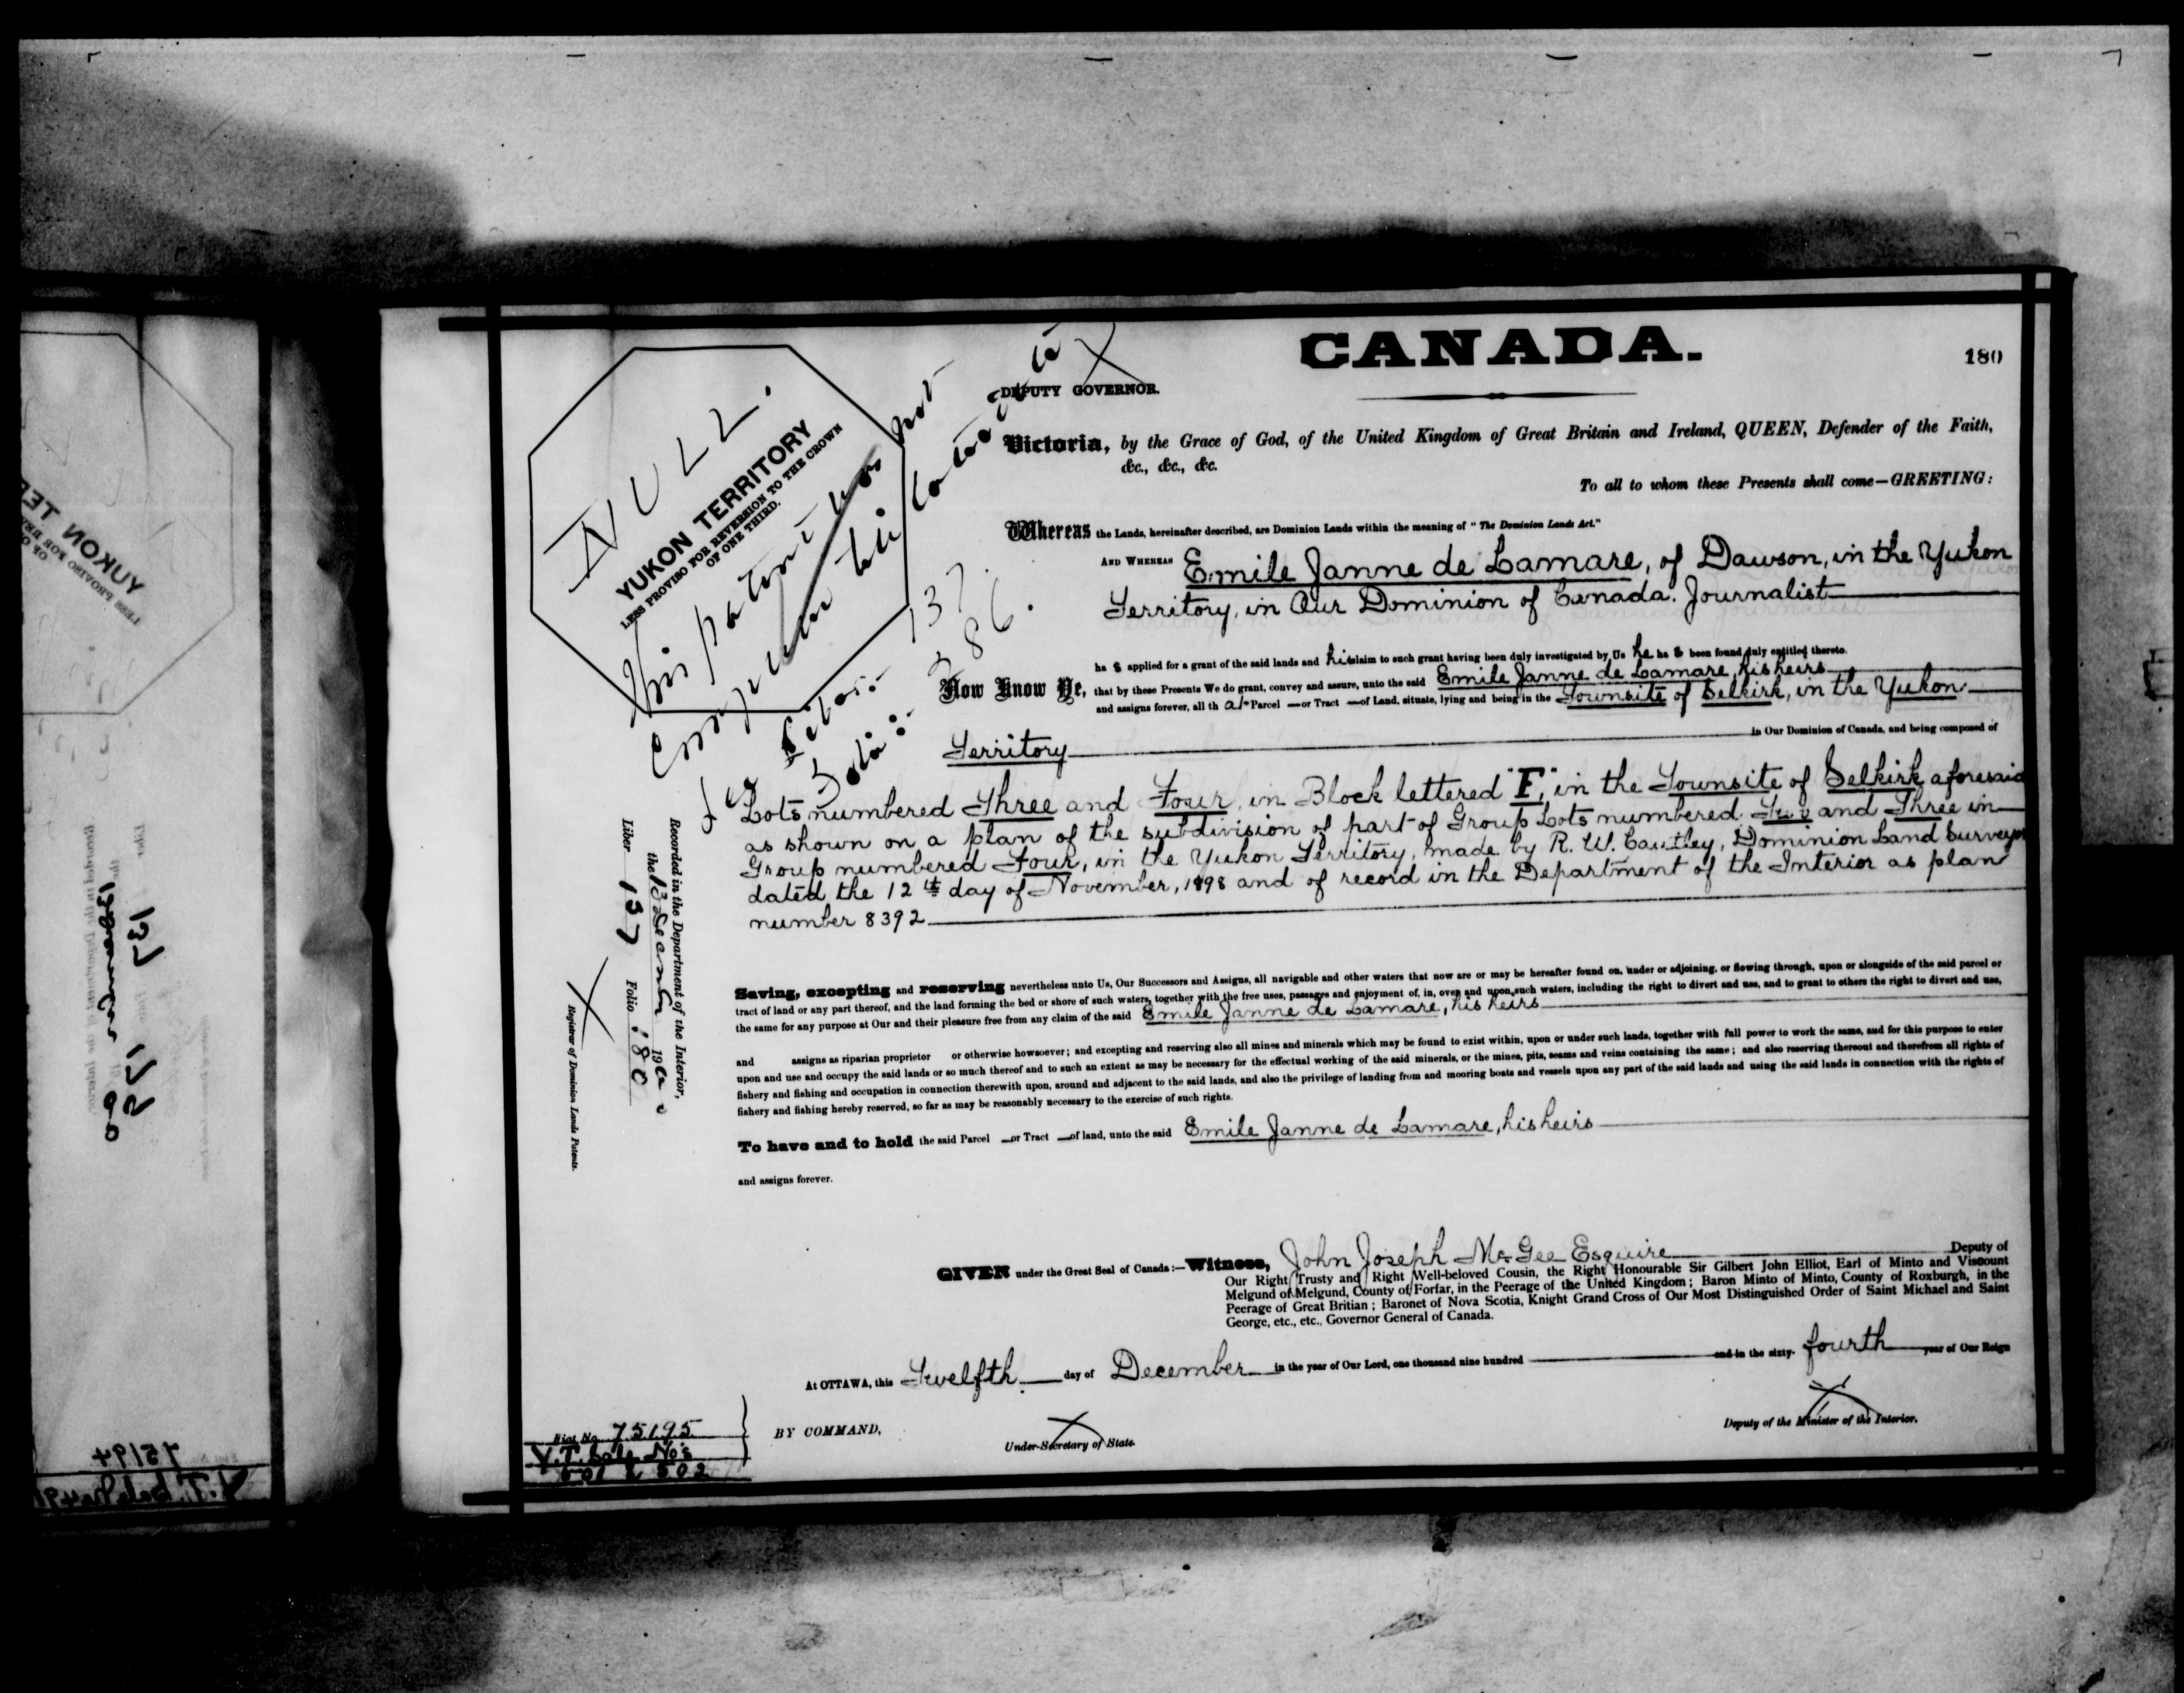 CANADA.
180
DEPUTY GOVERNOR.
NULL.
YUKON TERRITORY
LESS PROVISO FOR REVERSION TO THE CROWN
OF ONE THIRD.
This patent has not
Liber: 137.
Folio: 386.
Victoria, by the Grace of God, of the United Kingdom of Great Britain and Ireland, QUEEN, Defender of the Faith,
&c., &c., &c.
To all to whom these Presents shall come—GREETING:
Whereas the Lands, hereinafter described, are Dominion Lands within the meaning of "The Dominion Lands Act."
AND WHEREAS Emile Janne de Lamare, of Dawson, in the Yukon
Territory, in Our Dominion of Canada. Journalist
ha s applied for a grant of the said lands and his claim to such grant having been duly investigated by Us he ha s been found duly entitled thereto.
Now Know Ye, that by these Presents We do grant, convey and assure, unto the said Emile Janne de Lamare, his heirs
and assigns forever, all th at Parcel or Tract of Land, situate, lying and being in the Townsite of Selkirk, in the Yukon
Territory in Our Dominion of Canada, and being composed of
Lots numbered Three and Four, in Block lettered "F", in the Townsite of Selkirk aforesaid
as shown on a plan of the subdivision of part of Group Lots numbered Two and Three in
Group numbered Four, in the Yukon Territory, made by R. W. Cautley, Dominion Land Surveyor
dated the 12th day of November, 1898 and of record in the Department of the Interior as plan
number 8392
Recorded in the Department of the Interior,
the 13 December 1900
Liber 137 Folio 180
Registrar of Dominion Lands Patents.
Saving, excepting and reserving nevertheless unto Us, Our Successors and Assigns, all navigable and other waters that now are or may be hereafter found on, under or adjoining, or flowing through, upon or alongside of the said parcel or
tract of land or any part thereof, and the land forming the bed or shore of such waters, together with the free uses, passages and enjoyment of, in, over and upon such waters, including the right to divert and use, and to grant to others the right to divert and use,
the same for any purpose at Our and their pleasure free from any claim of the said Emile Janne de Lamare, his heirs
and assigns as riparian proprietor or otherwise howsoever; and excepting and reserving also all mines and minerals which may be found to exist within, upon or under such lands, together with full power to work the same, and for this purpose to enter
upon and use and occupy the said lands or so much thereof and to such an extent as may be necessary for the effectual working of the said minerals, or the mines, pits, seams and veins containing the same; and also reserving thereout and therefrom all rights of
fishery and fishing and occupation in connection therewith upon, around and adjacent to the said lands, and also the privilege of landing from and mooring boats and vessels upon any part of the said lands and using the said lands in connection with the rights of
fishery and fishing hereby reserved, so far as may be reasonably necessary to the exercise of such rights.
To have and to hold the said Parcel or Tract of land, unto the said Emile Janne de Lamare, his heirs
and assigns forever.
GIVEN under the Great Seal of Canada:—Witness, John Joseph McGee Esquire Deputy of
Our Right Trusty and Right Well-beloved Cousin, the Right Honourable Sir Gilbert John Elliot, Earl of Minto and Viscount
Melgund of Melgund, County of Forfar, in the Peerage of the United Kingdom; Baron Minto of Minto, County of Roxburgh, in the
Peerage of Great Britian; Baronet of Nova Scotia, Knight Grand Cross of Our Most Distinguished Order of Saint Michael and Saint
George, etc., etc., Governor General of Canada.
At OTTAWA, this Twelfth day of December in the year of Our Lord, one thousand nine hundred and in the sixty-fourth year of Our Reign
BY COMMAND,
Under-Secretary of State.
Deputy of the Minister of the Interior.
Fiat No. 75195
Y.T. Sale No's
501 & 502
YUKON TER
137
75194